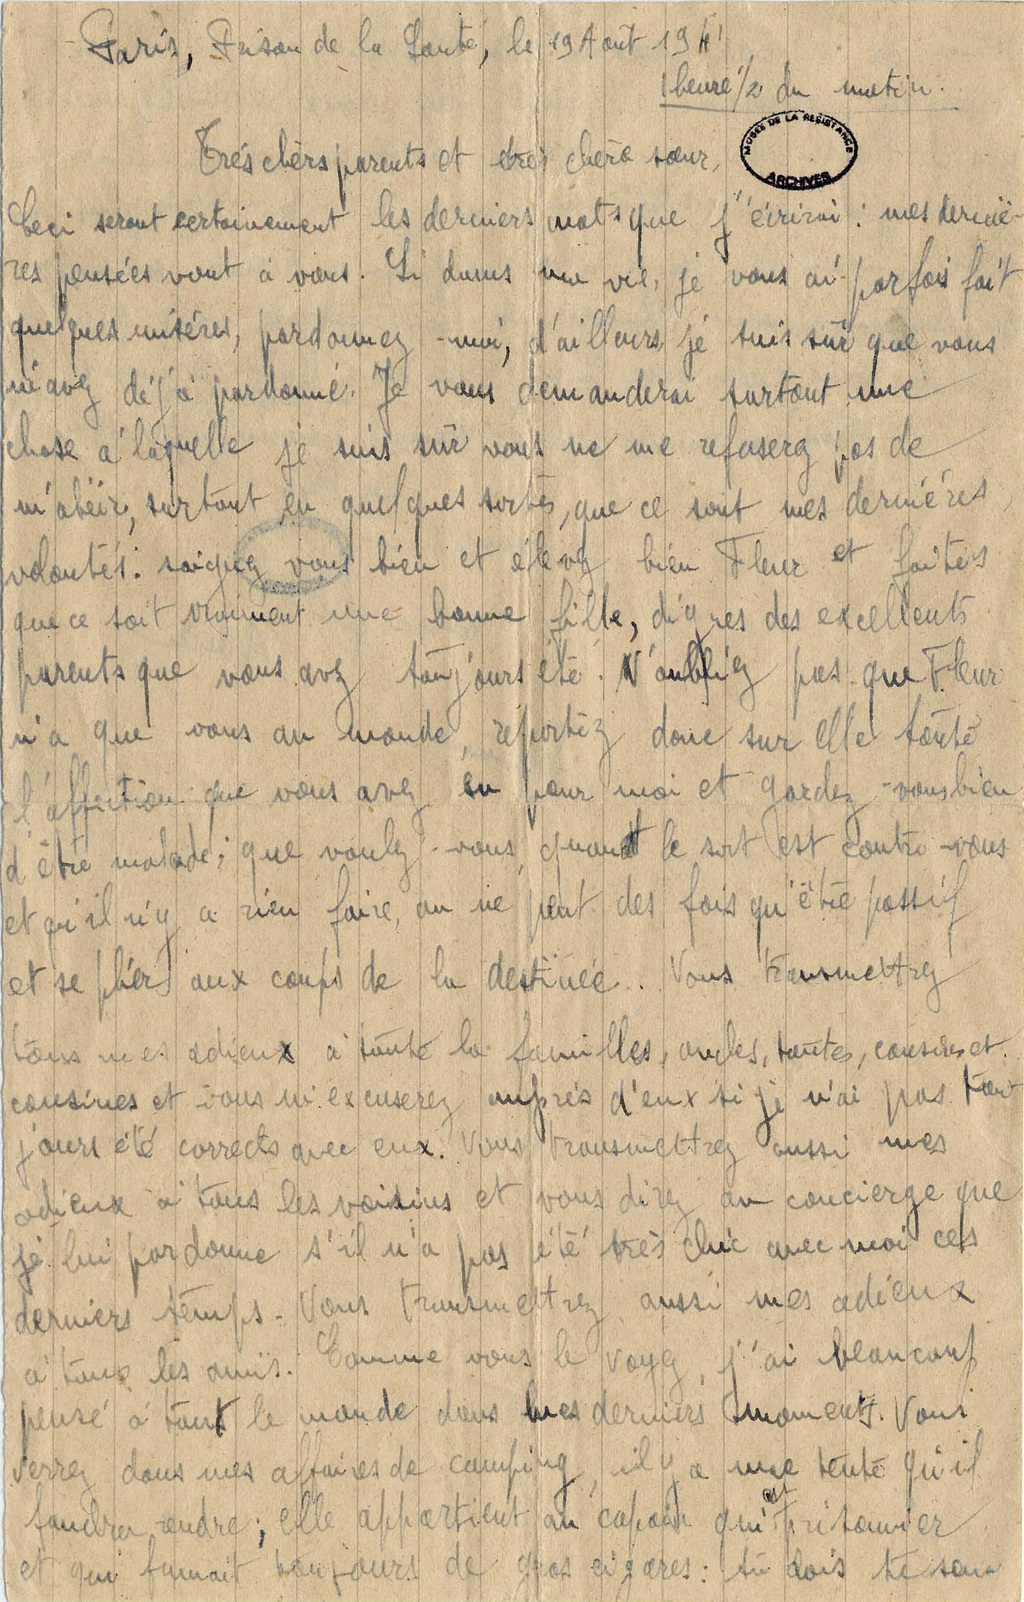 Paris, Prison de la Santé, le 19 Août 1941
1 heure 1/2 du matin.
MUSÉE DE LA RÉSISTANCE
ARCHIVES
Très chers parents et très chère sœur,
Ceci seront certainement les derniers mots que j'écrirai : mes derniè-
res pensées vont à vous. Si dans ma vie, je vous ai parfois fait
quelques misères, pardonnez-moi, d'ailleurs je suis sûr que vous
m'avez déjà pardonné. Je vous demanderai surtout une
chose à laquelle je suis sûr vous ne me refuserez pas de
m'obéir, surtout en quelques sortes, que ce sont mes dernières
volontés : soignez vous bien et élevez bien Fleur et faites
que ce soit vraiment une bonne fille, dignes des excellents
parents que vous avez toujours été. N'oubliez pas que Fleur
n'a que vous au monde, reportez donc sur elle toute
l'affection que vous avez eu pour moi et gardez-vous bien
d'être malade ; que voulez-vous, quand le sort est contre-vous
et qu'il n'y a rien faire, on ne peut des fois qu'être passif
et se plier aux coups de la destinée.. Vous transmettrez
tous mes adieux à toute la familles, oncles, tantes, cousins et
cousines et vous m'excuserez auprès d'eux si je n'ai pas tou-
jours été corrects avec eux. Vous transmettrez aussi mes
adieux à tous les voisins et vous direz au concierge que
je lui pardonne s'il n'a pas été très chic avec moi ces
derniers temps. Vous transmettrez aussi mes adieux
à tous les amis. Comme vous le voyez, j'ai beaucoup
pensé à tout le monde dans mes derniers moments. Vous
verrez dans mes affaires de camping, il y a une tente qu'il
faudra rendre ; elle appartient au copain qui est prisonnier
et qui fumait toujours de gros cigares : tu dois te sou